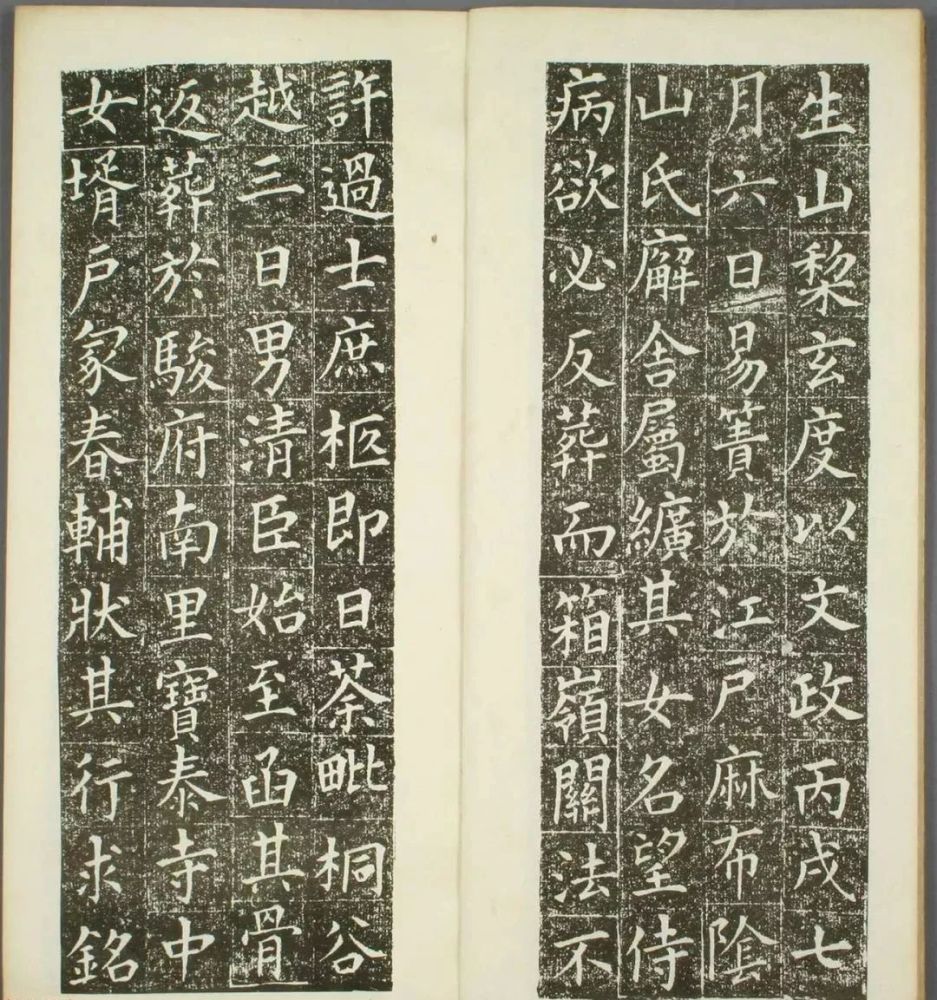 生山梨玄度以文政丙戌七
月六日易簀於江戸麻布陰
山氏廨舎屬纊其女名望侍
病欲必反葬而箱嶺關法不
許過士庶柩即日荼毗桐谷
越三日男清臣始至函其骨
返葬於駿府南里寶泰寺中
女壻戸冢春輔狀其行求銘